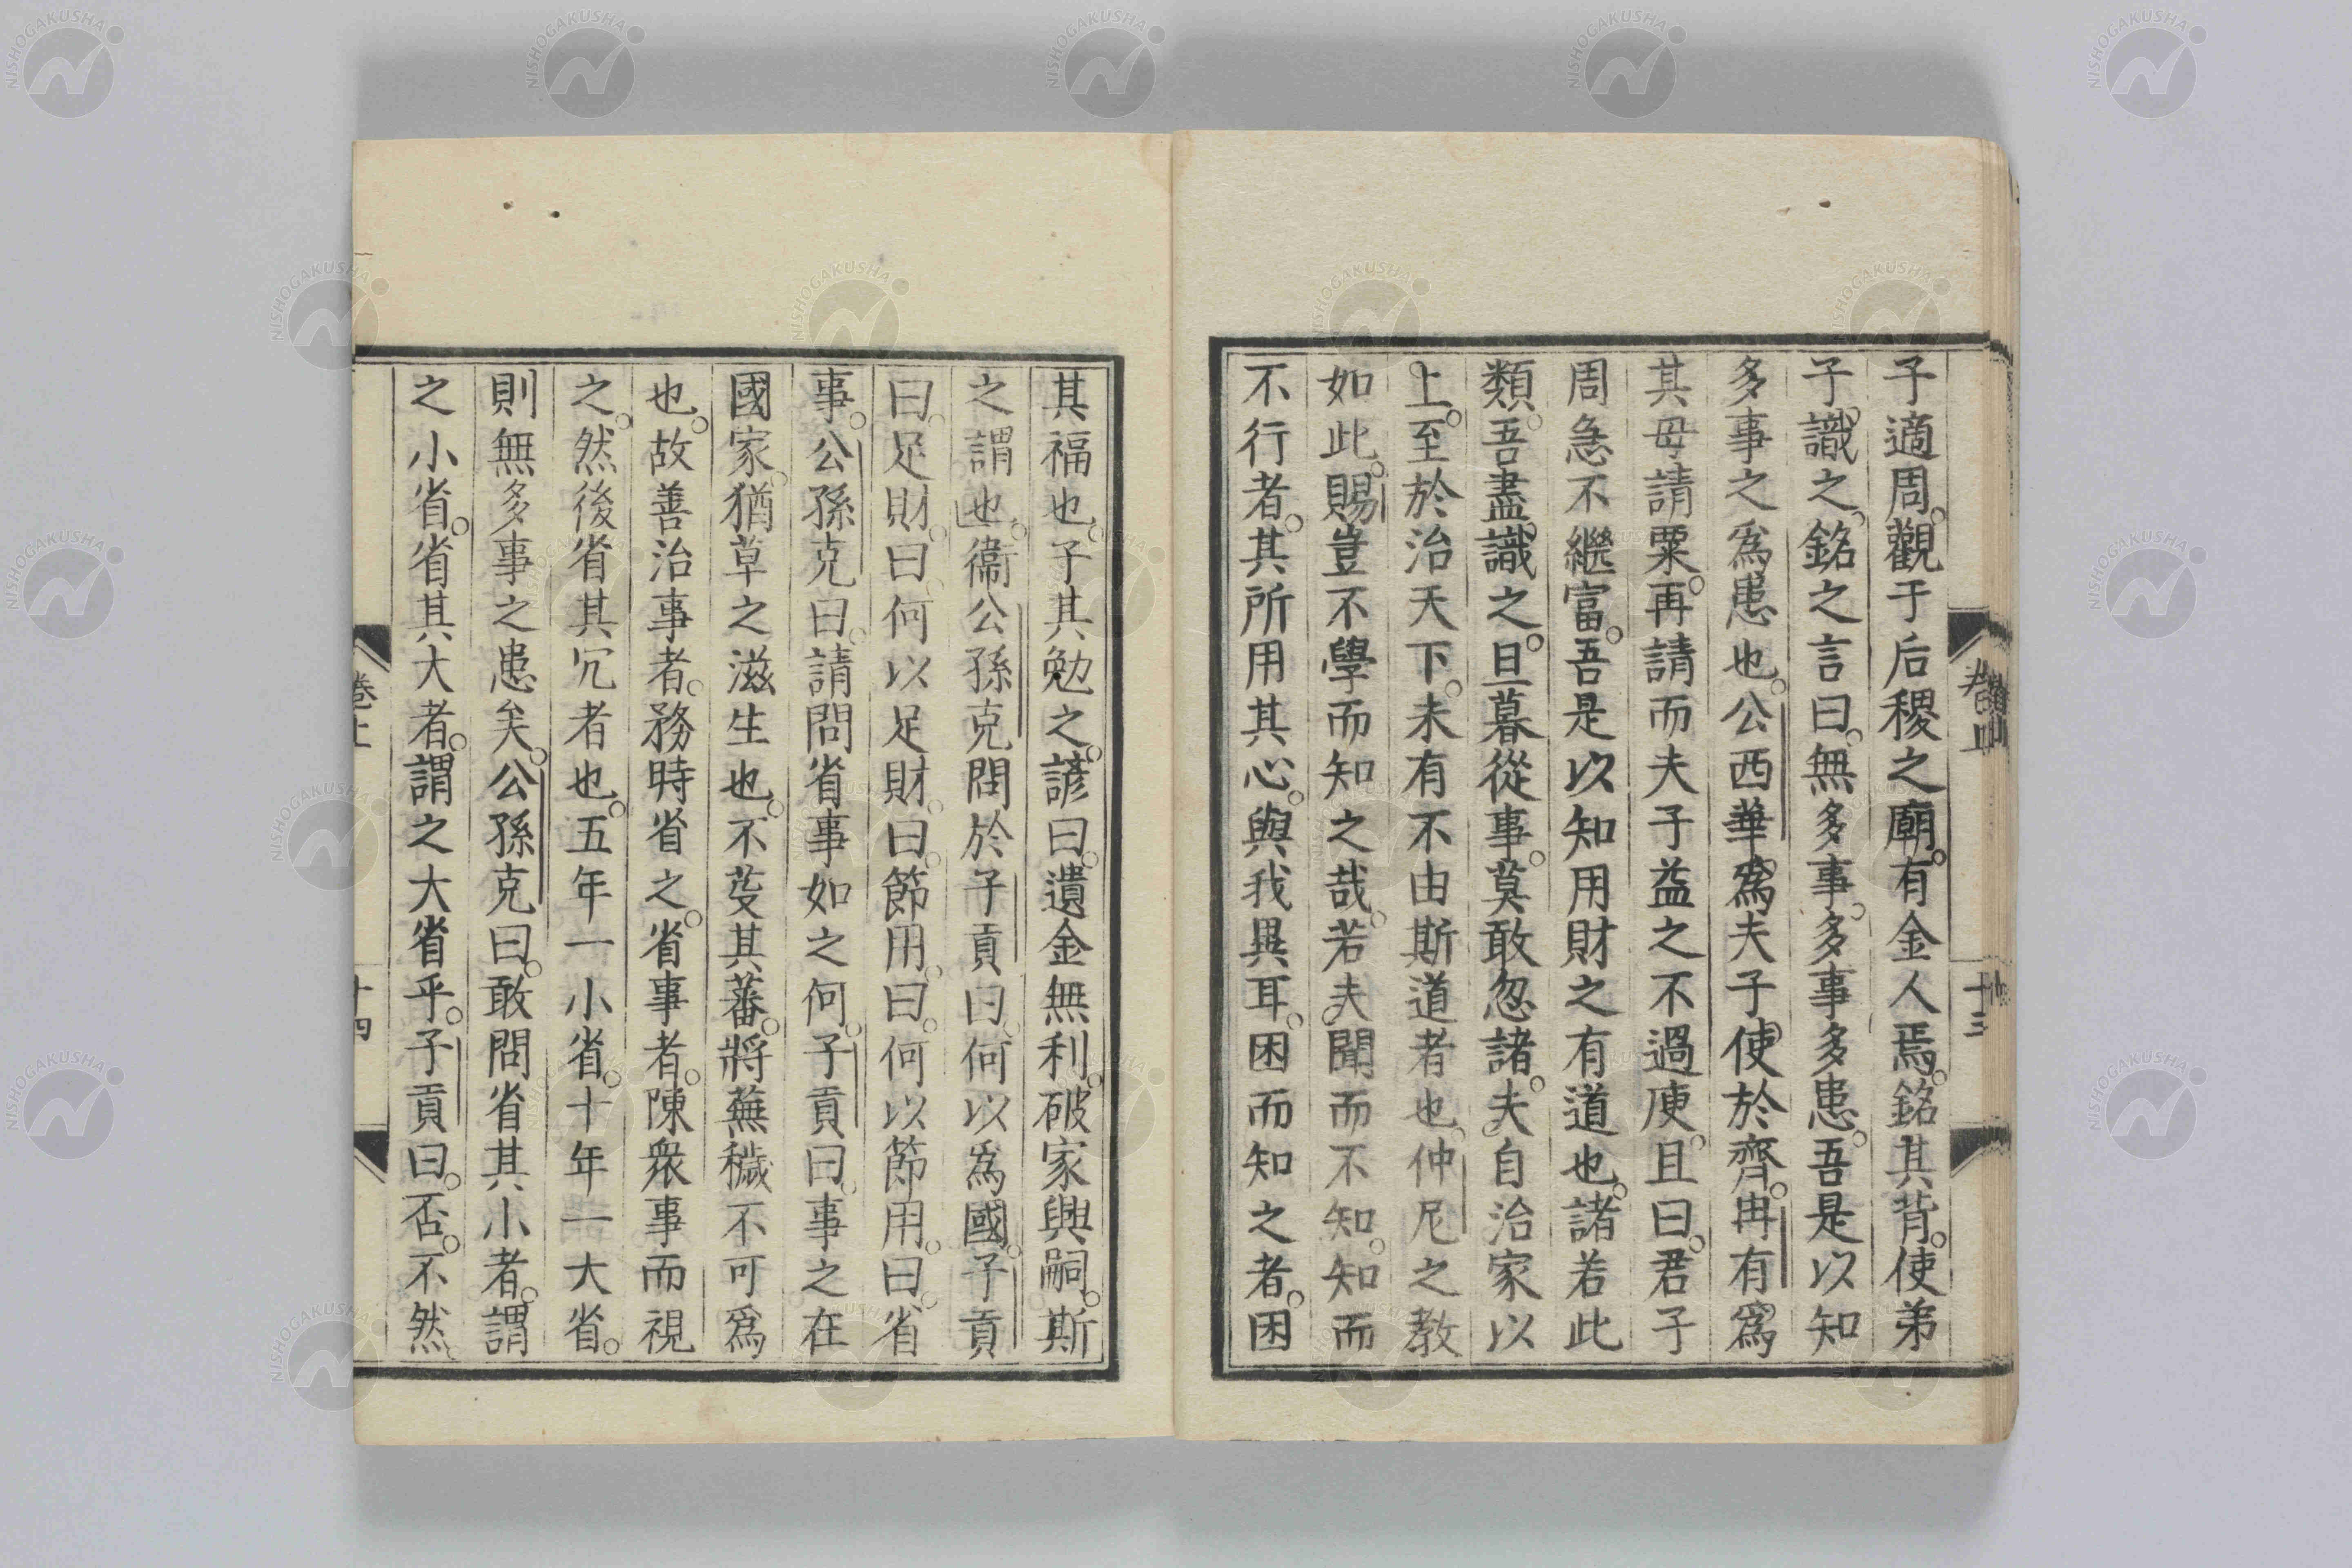 子適周。觀于后稷之廟。有金人焉。銘其背。使弟
子識之。銘之言曰。無多事。多事多患。吾是以知
多事之爲患也。公西華爲夫子使於齊。冉有爲
其母請粟。再請而夫子益之不過庾。且曰。君子
周急不繼富。吾是以知用財之有道也。諸若此
類。吾盡識之。旦暮從事。莫敢忽諸。夫自治家以
上。至於治天下。未有不由斯道者也。仲尼之教
如此。賜豈不學而知之哉。若夫聞而不知。知而
不行者。其所用其心。與我異耳。困而知之者。困
十三
其福也。子其勉之。諺曰。遺金無利。破家興嗣。斯
之謂也。衞公孫克問於子貢曰。何以爲國。子貢
曰。足財。曰。何以足財。曰。節用。曰。何以節用。曰。省
事。公孫克曰。請問省事如之何。子貢曰。事之在
國家。猶草之滋生也。不芟其蕃。將蕪穢不可爲
也。故善治事者。務時省之。省事者。陳衆事而視
之。然後省其冗者也。五年一小省。十年一大省。
則無多事之患矣。公孫克曰。敢問省其小者。謂
之小省。省其大者。謂之大省乎。子貢曰。否。不然。
卷上
十四
NISHOGAKUSHA